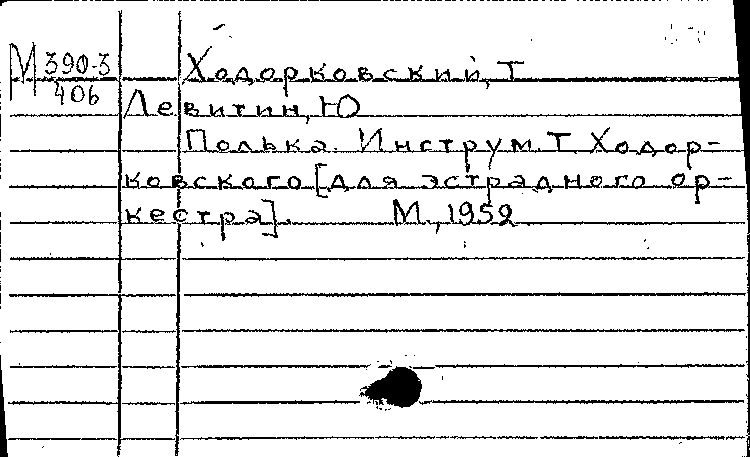 М 390-3
406
Ходорковский, Т
Левитин, Ю
Полька. Инструм. Т. Ходор-
ковского [для эстрадного ор-
кестра]. М., 1952